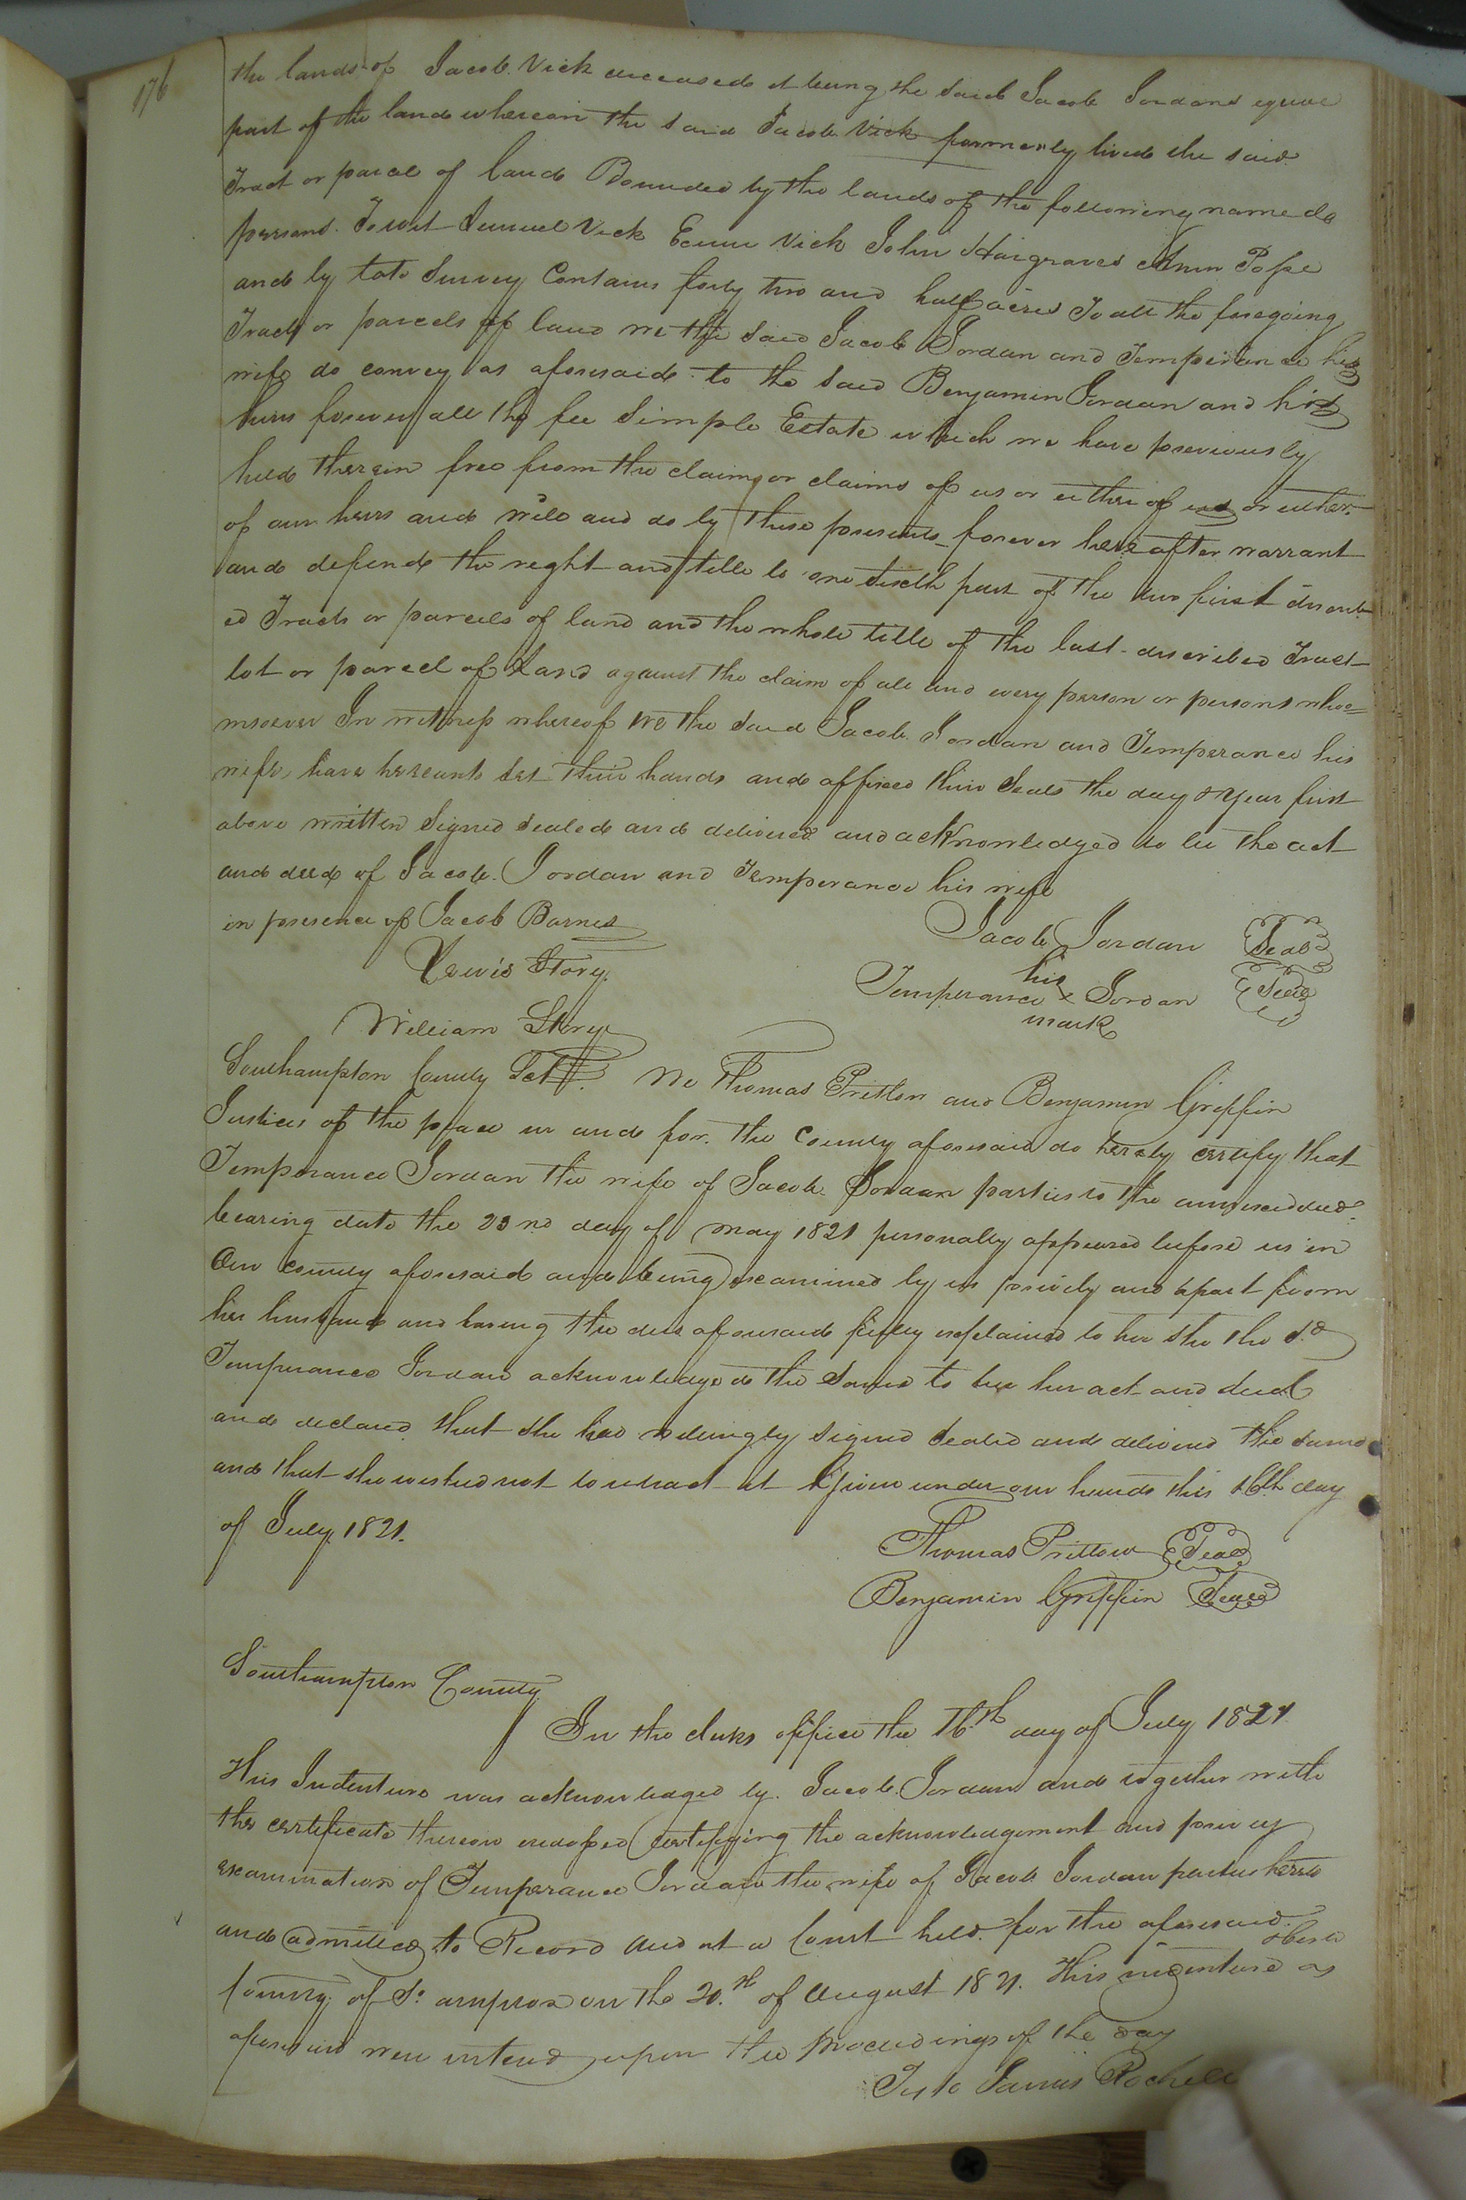 176
the lands of Jacob Vick deceased it being the said Jacob Jordans equal
part of the land whereon the said Jacob Vick formerly lived the said
Tract or parcel of land Bounded by the lands of the following named
persons. Towit Vick Vick John Hargraves Ann Pope
and by late Survey Contains forty two and half acres To all the foregoing
Tracts or parcels of land we the said Jacob Jordan and Temperance his
wife do convey as aforesaid to the said Benjamin Jordan and his
heirs forever all the fee Simple Estate which we have previously
held therein free from the claim or claims of us or either of us or either
of our heirs and will and do by these presents forever hereafter warrant
and defend the right and title to one sixth part of the two first describ
ed Tracts or parcels of land and the whole title of the last described Tract
lot or parcel of Land against the claim of all and every person or persons whoe=
msoever In witness whereof we the said Jacob Jordan and Temperance his
wife, have hereunto set their hands and affixed their Seals the day & year first
above written Signed sealed and delivered and acknowledged to be the act
and deed of Jacob Jordan and Temperance his wife
in presence of Jacob Barnes
Lewis Story
William Story
Jacob Jordan Seal
his
Temperance x Jordan Seal
mark
Southampton County Sct. We Thomas Pretlow and Benjamin Griffin
Justices of the peace in and for the County aforesaid do hereby certify that
Temperance Jordan the wife of Jacob Jordan parties to the annexed deed
bearing date the 23rd day of May 1821 personally appeared before us in
Our county aforesaid and being examined by us privily and apart from
her husband and having the deed aforesaid fully explained to her she the sd.
Temperance Jordan acknowledged the same to be her act and deed
and declared that she had willingly signed sealed and delivered the same
and that she wished not to retract it Given under our hands this 16th day
of July 1821.
Thomas Pretlow Seal
Benjamin Griffin Seal
Southampton County
In the clerks office the 16th day of July 1821
This Indenture was acknowledged by Jacob Jordan and together with
the certificate thereon endorsed Certifying the acknowledgement and privy
examination of Temperance Jordan the wife of Jacob Jordan parties hereto
and admitted to Record And at a Court held for the aforesaid
County of So. ampton on the 20.th of August 1821. This indenture as
aforesaid were entered upon the proceedings of the day
Teste James Rochelle